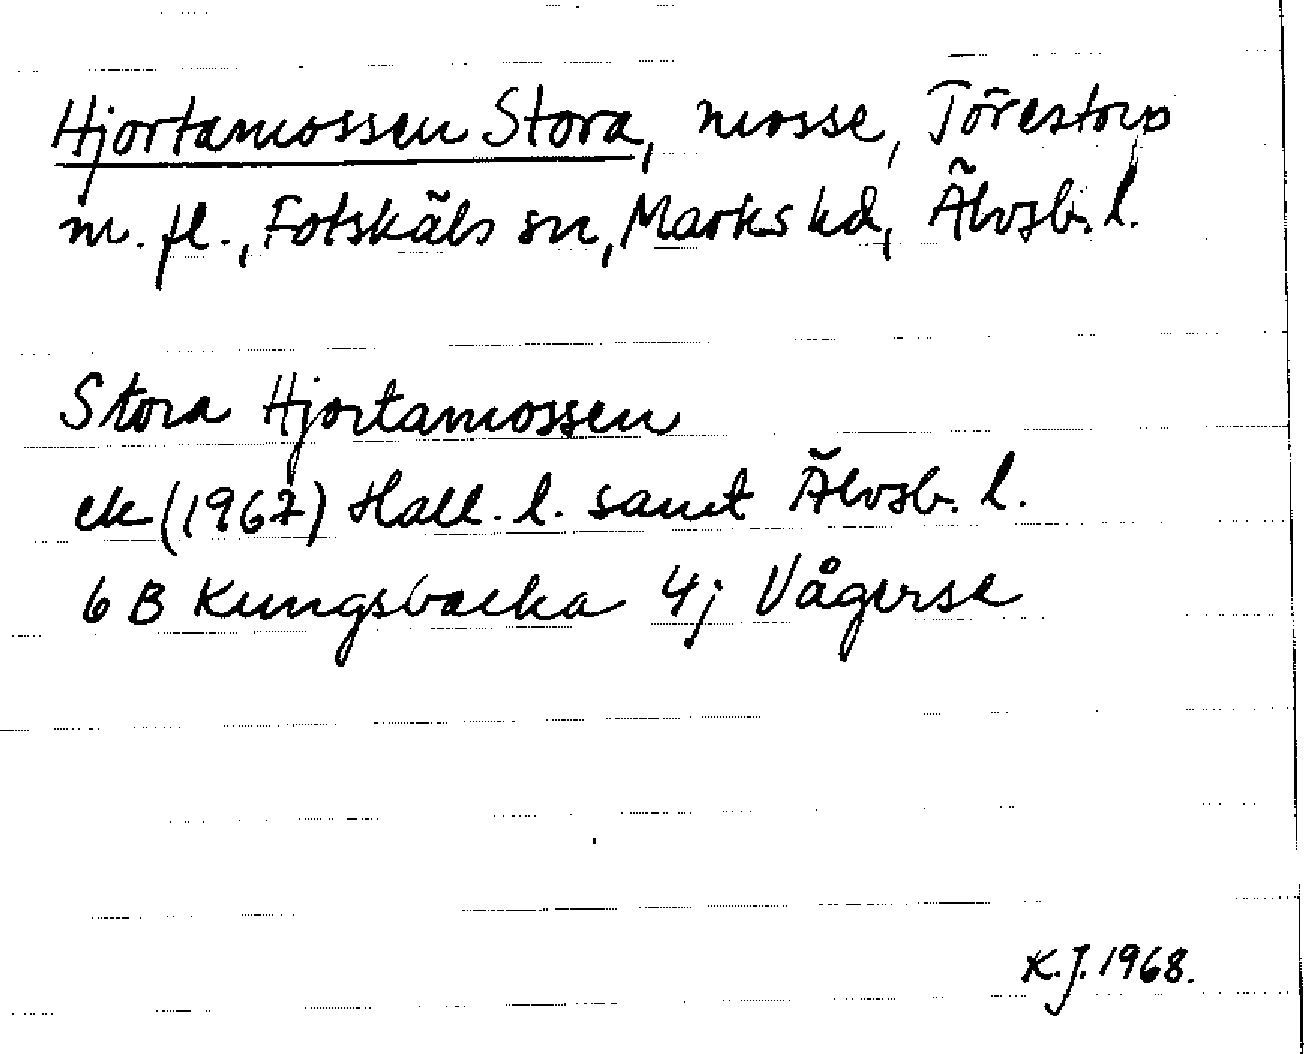 Hjortamossen Stora, mosse, Törestorp
m. fl., Fotskäls sn, Marks hd, Älvsb. l.
Stora Hjortamossen
ek (1967) Hall. l. samt Älvsb. l.
6 B Kungsbacka 4j Vågerse
K.J. 1968.